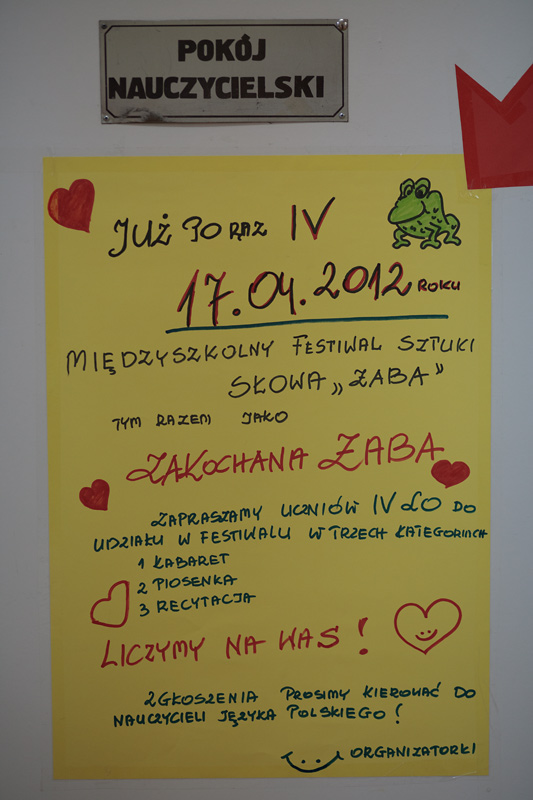 POKÓJ
NAUCZYCIELSKI
JUŻ PO RAZ IV
17.04.2012 ROKU
MIĘDZYSZKOLNY FESTIWAL SZTUKI
SŁOWA „ŻABA”
TYM RAZEM JAKO
ZAKOCHANA ŻABA
ZAPRASZAMY UCZNIÓW IV LO DO
UDZIAŁU W FESTIWALU W TRZECH KATEGORIACH
1 KABARET
2 PIOSENKA
3 RECYTACJA
LICZYMY NA WAS!
ZGŁOSZENIA PROSIMY KIEROWAĆ DO
NAUCZYCIELI JĘZYKA POLSKIEGO!
ORGANIZATORKI